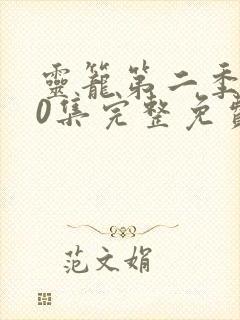 靈籠第二季
0集完整免費
范文娟